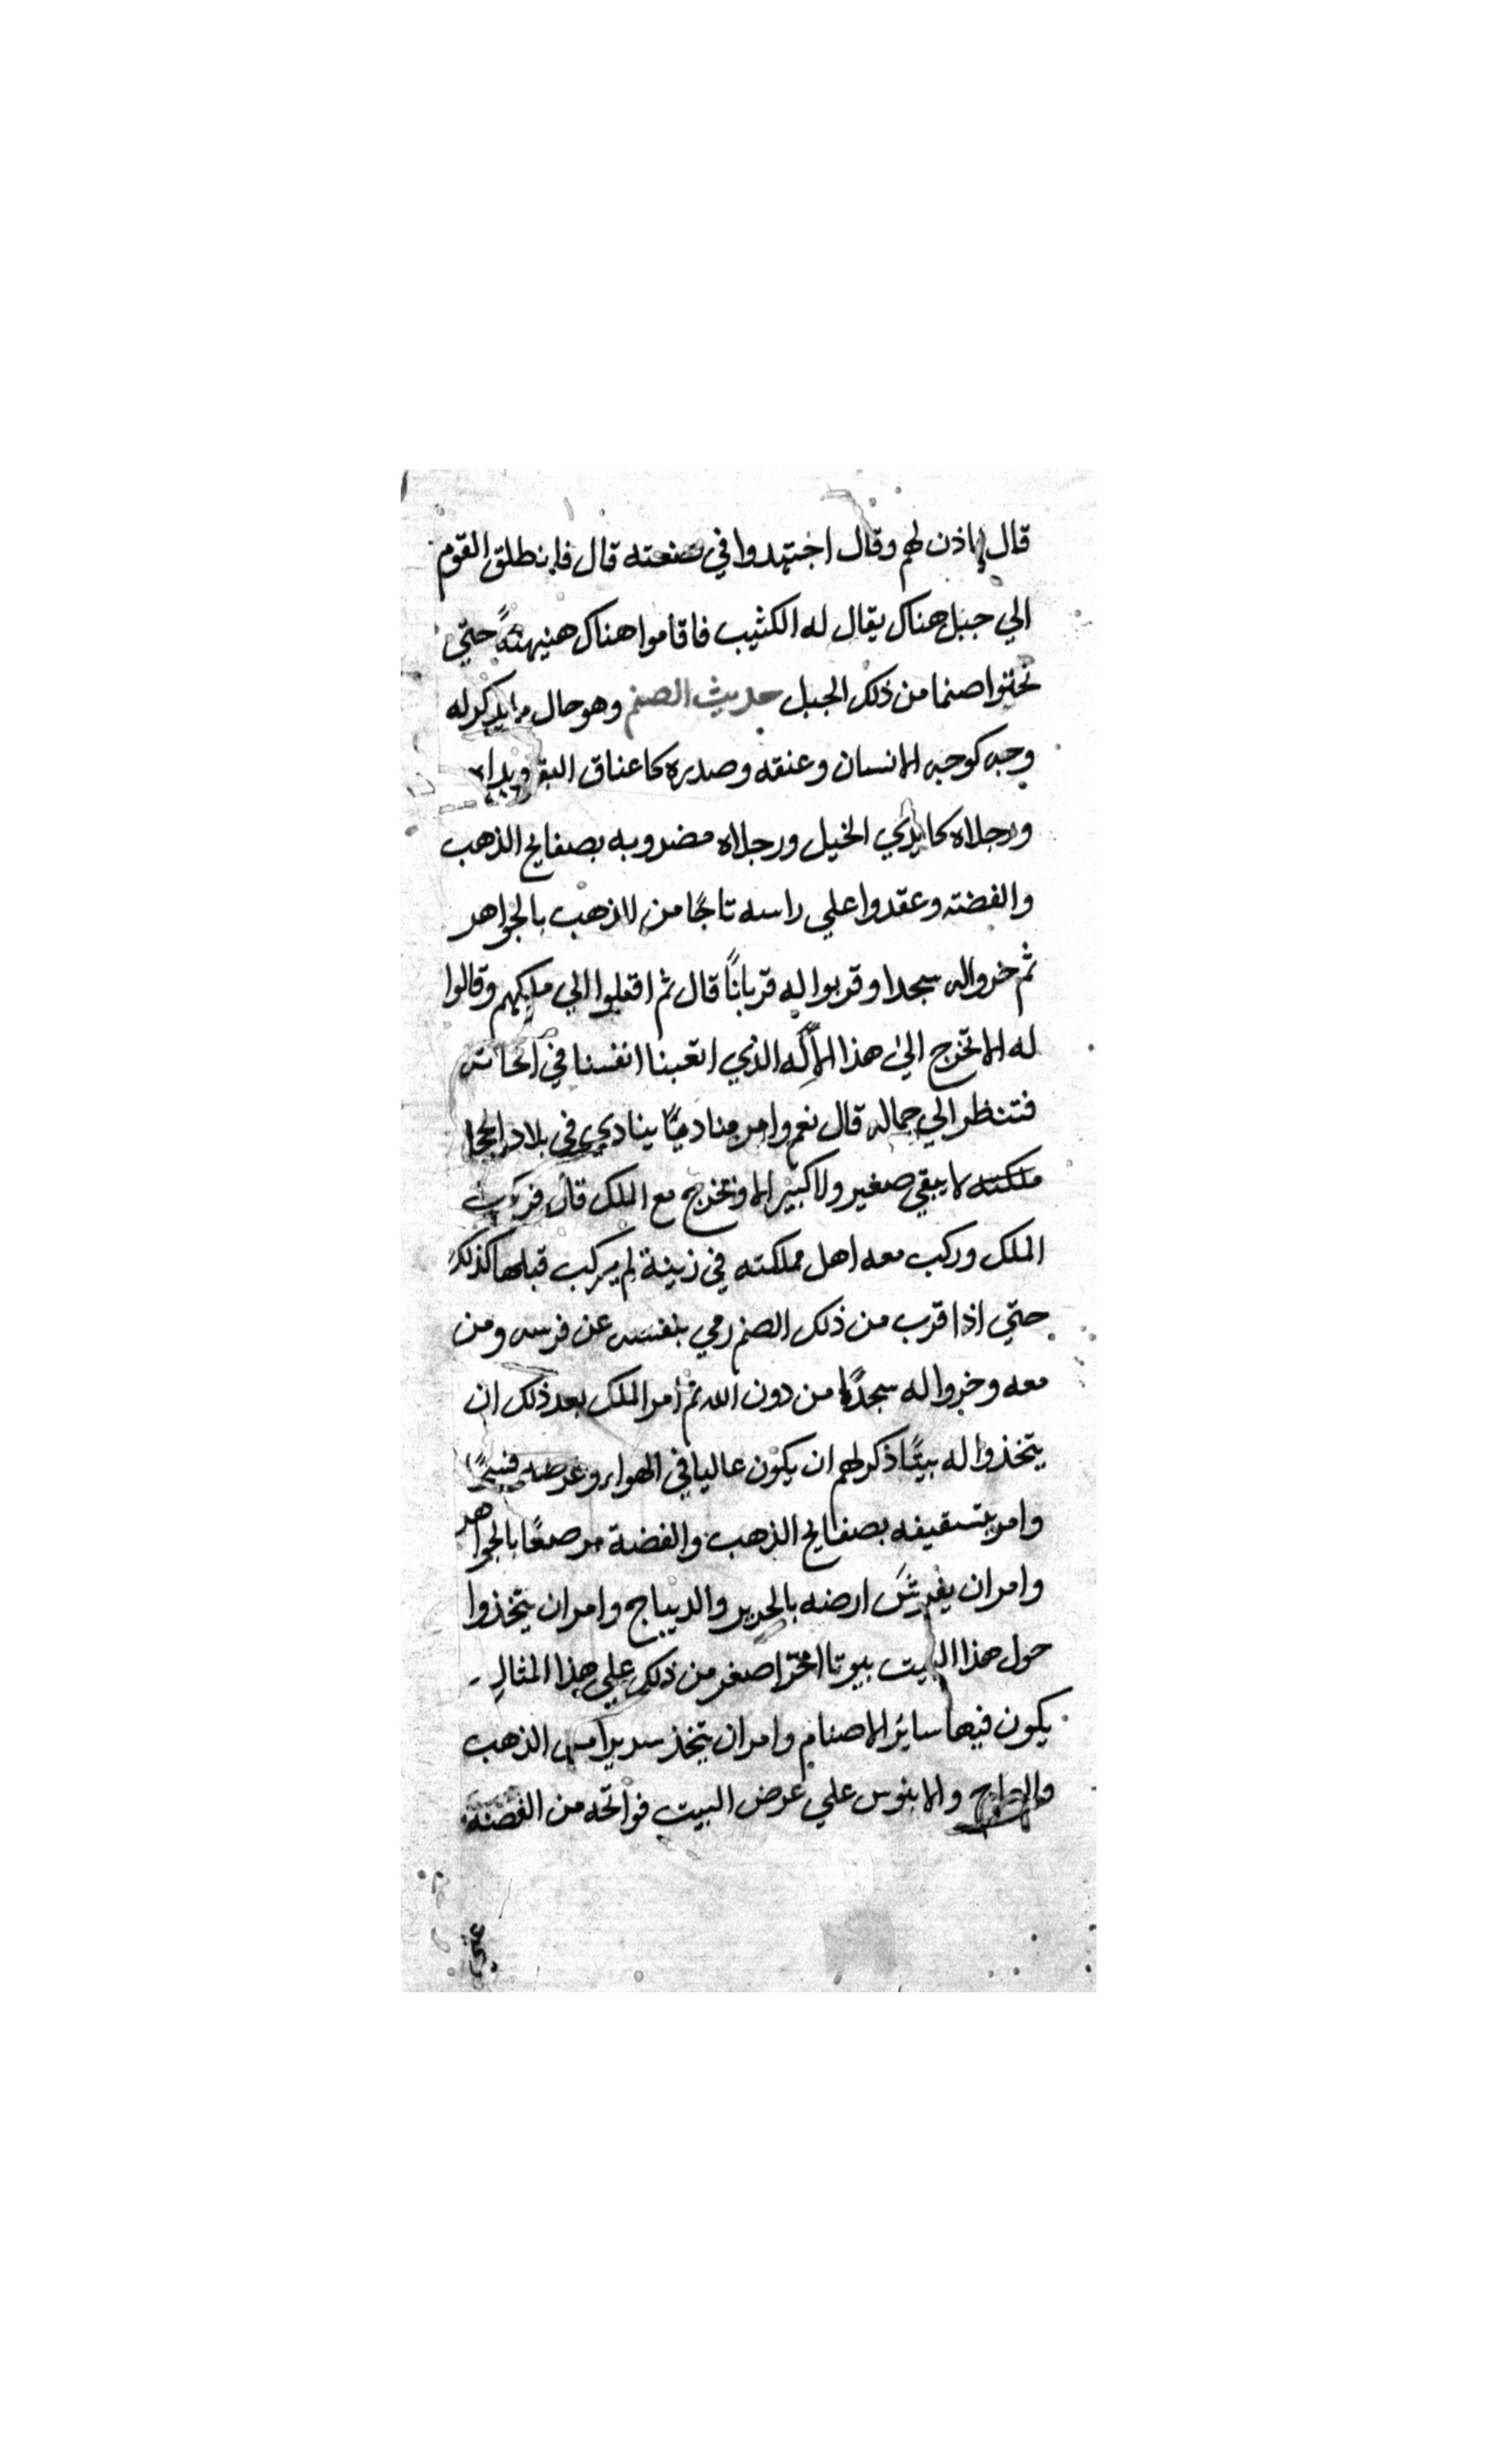 قال فاذن لهم وقال اجتهدوا في صنعته قال فانطلق القوم
الي جبل هناك يقال له الكثيب فاقاموا هناك هنيهةً حتي
نحتوا صنما من ذلك الجبل حديث الصنم وهو حال ما يذكر له
وجه كوجه الانسان وعنقه وصدره كاعناق البقر ويداه
ورجلاه كايدي الخيل ورجلاه مضروبه بصفايح الذهب
والفضته وعقدوا علي راسه تاجًا من الذهب بالجواهر
ثم خروا له سجدا وقربوا له قربانًا قال ثم اقبلوا الي ملكهم وقالوا
له الا تخرج الي هذا الاله الذي اتعبنا انفسنا في
فتنظر الي جماله قال نعم وامر مناديًا ينادي في بلاد الحجا
ملكته لا يبقي صغير ولا كبير الا ويخرج مع الملك قال فركب
الملك وركب معه اهل مملكته في زينة لم يركب قبلها كذلك
حتي اذا قرب من ذلك الصنم رمي بنفسه عن فرسه ومن
معه وخروا له سجدًا من دون الله ثم امر الملك بعد ذلك ان
يتخذوا له بيتًا ذكر لهم ان يكون عاليا في الهواء وعرضه فسيحًا
وامر بتسقيفه بصفايح الذهب والفضة مرصعًا بالجواهر
وامر ان يفرش ارضه بالحرير والديباج وامر ان يتخذوا
حول هذا البيت بيوتا اخر اصغر من ذلك علي هذا المثال
يكون فيها سائر الاصنام وامر ان يتخذ سريرا من الذهب
والعاج والابنوس علي عرض البيت قوائمه من الفضة